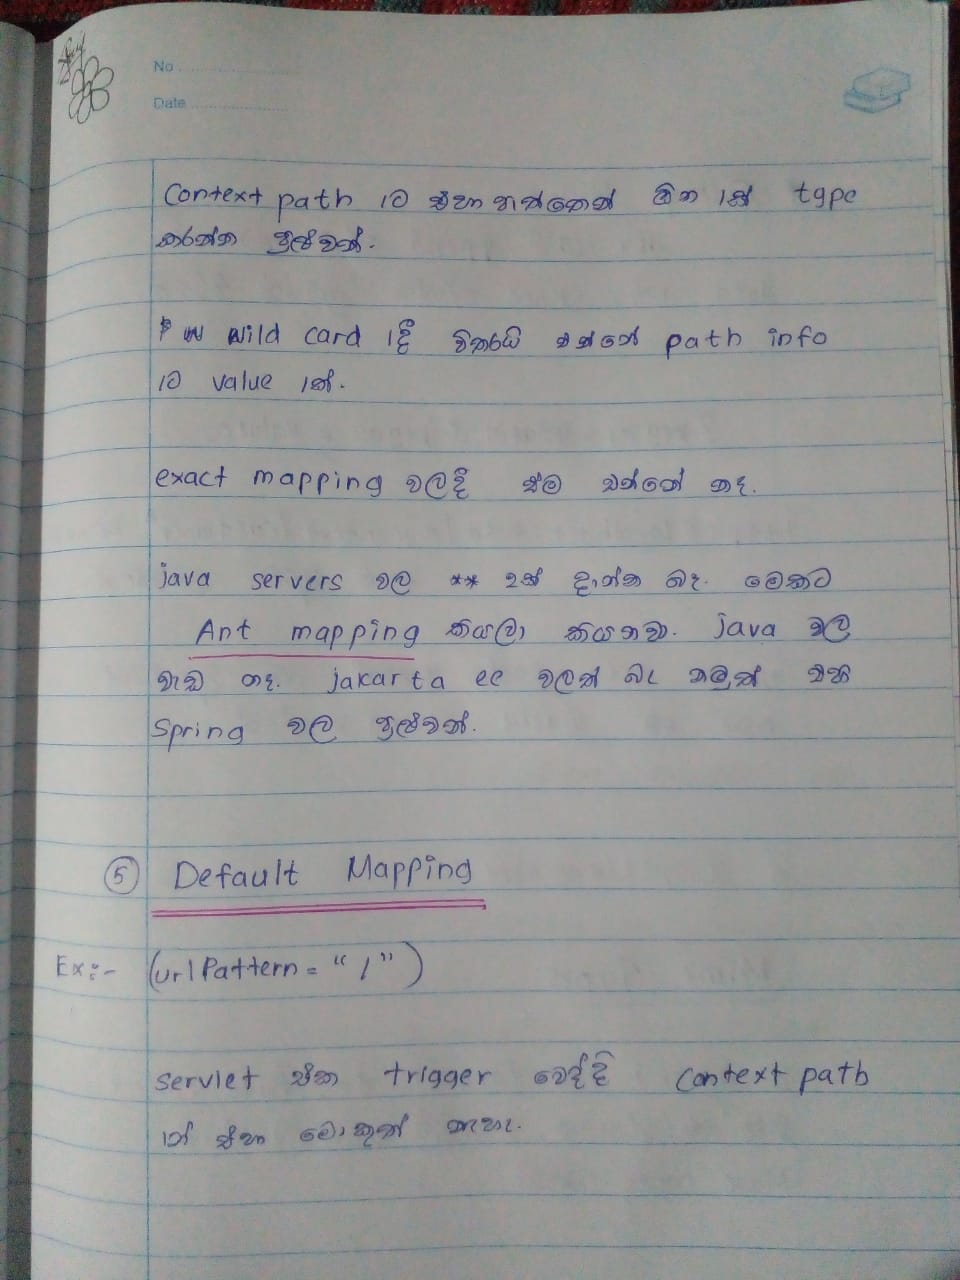 No
Date
Context path එට එහා පැත්තෙන් ඕන එක් type
කරන්න පුළුවන්.
wild card එදී විතරයි එන්නේ path info
එට value එක්.
exact mapping වලදී එම එන්නේ නෑ.
java servers වල ** 2ක් දාන්න බෑ. මේකට
Ant mapping කියලා කියනවා. java වල
වැඩ නෑ. jakarta ee වලත් බෑ නමුත් එහි
Spring වල පුළුවන්.
5 Default Mapping
Ex:- (urlPattern = "/")
servlet එක trigger වෙද්දි context path
එන් එහා මොකුත් නැහැ.